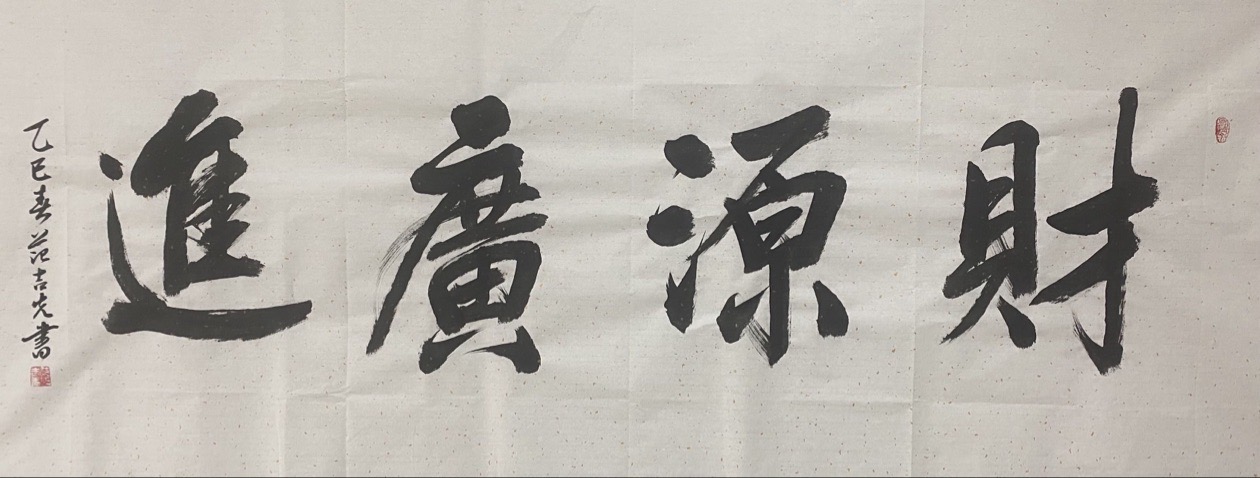 財源廣進
乙巳春范吉先書